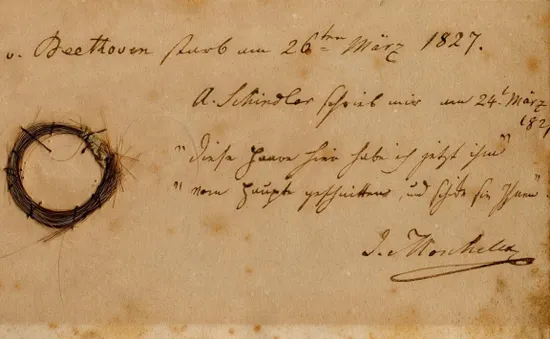 v. Beethoven starb am 26ten März 1827.
A. Schindler schrieb mir am 24t März
182
"Diese Haare hier habe ich jetzt ihm"
"vom Haupte geschnitten, und schicke sie Ihnen".
J. Moscheles